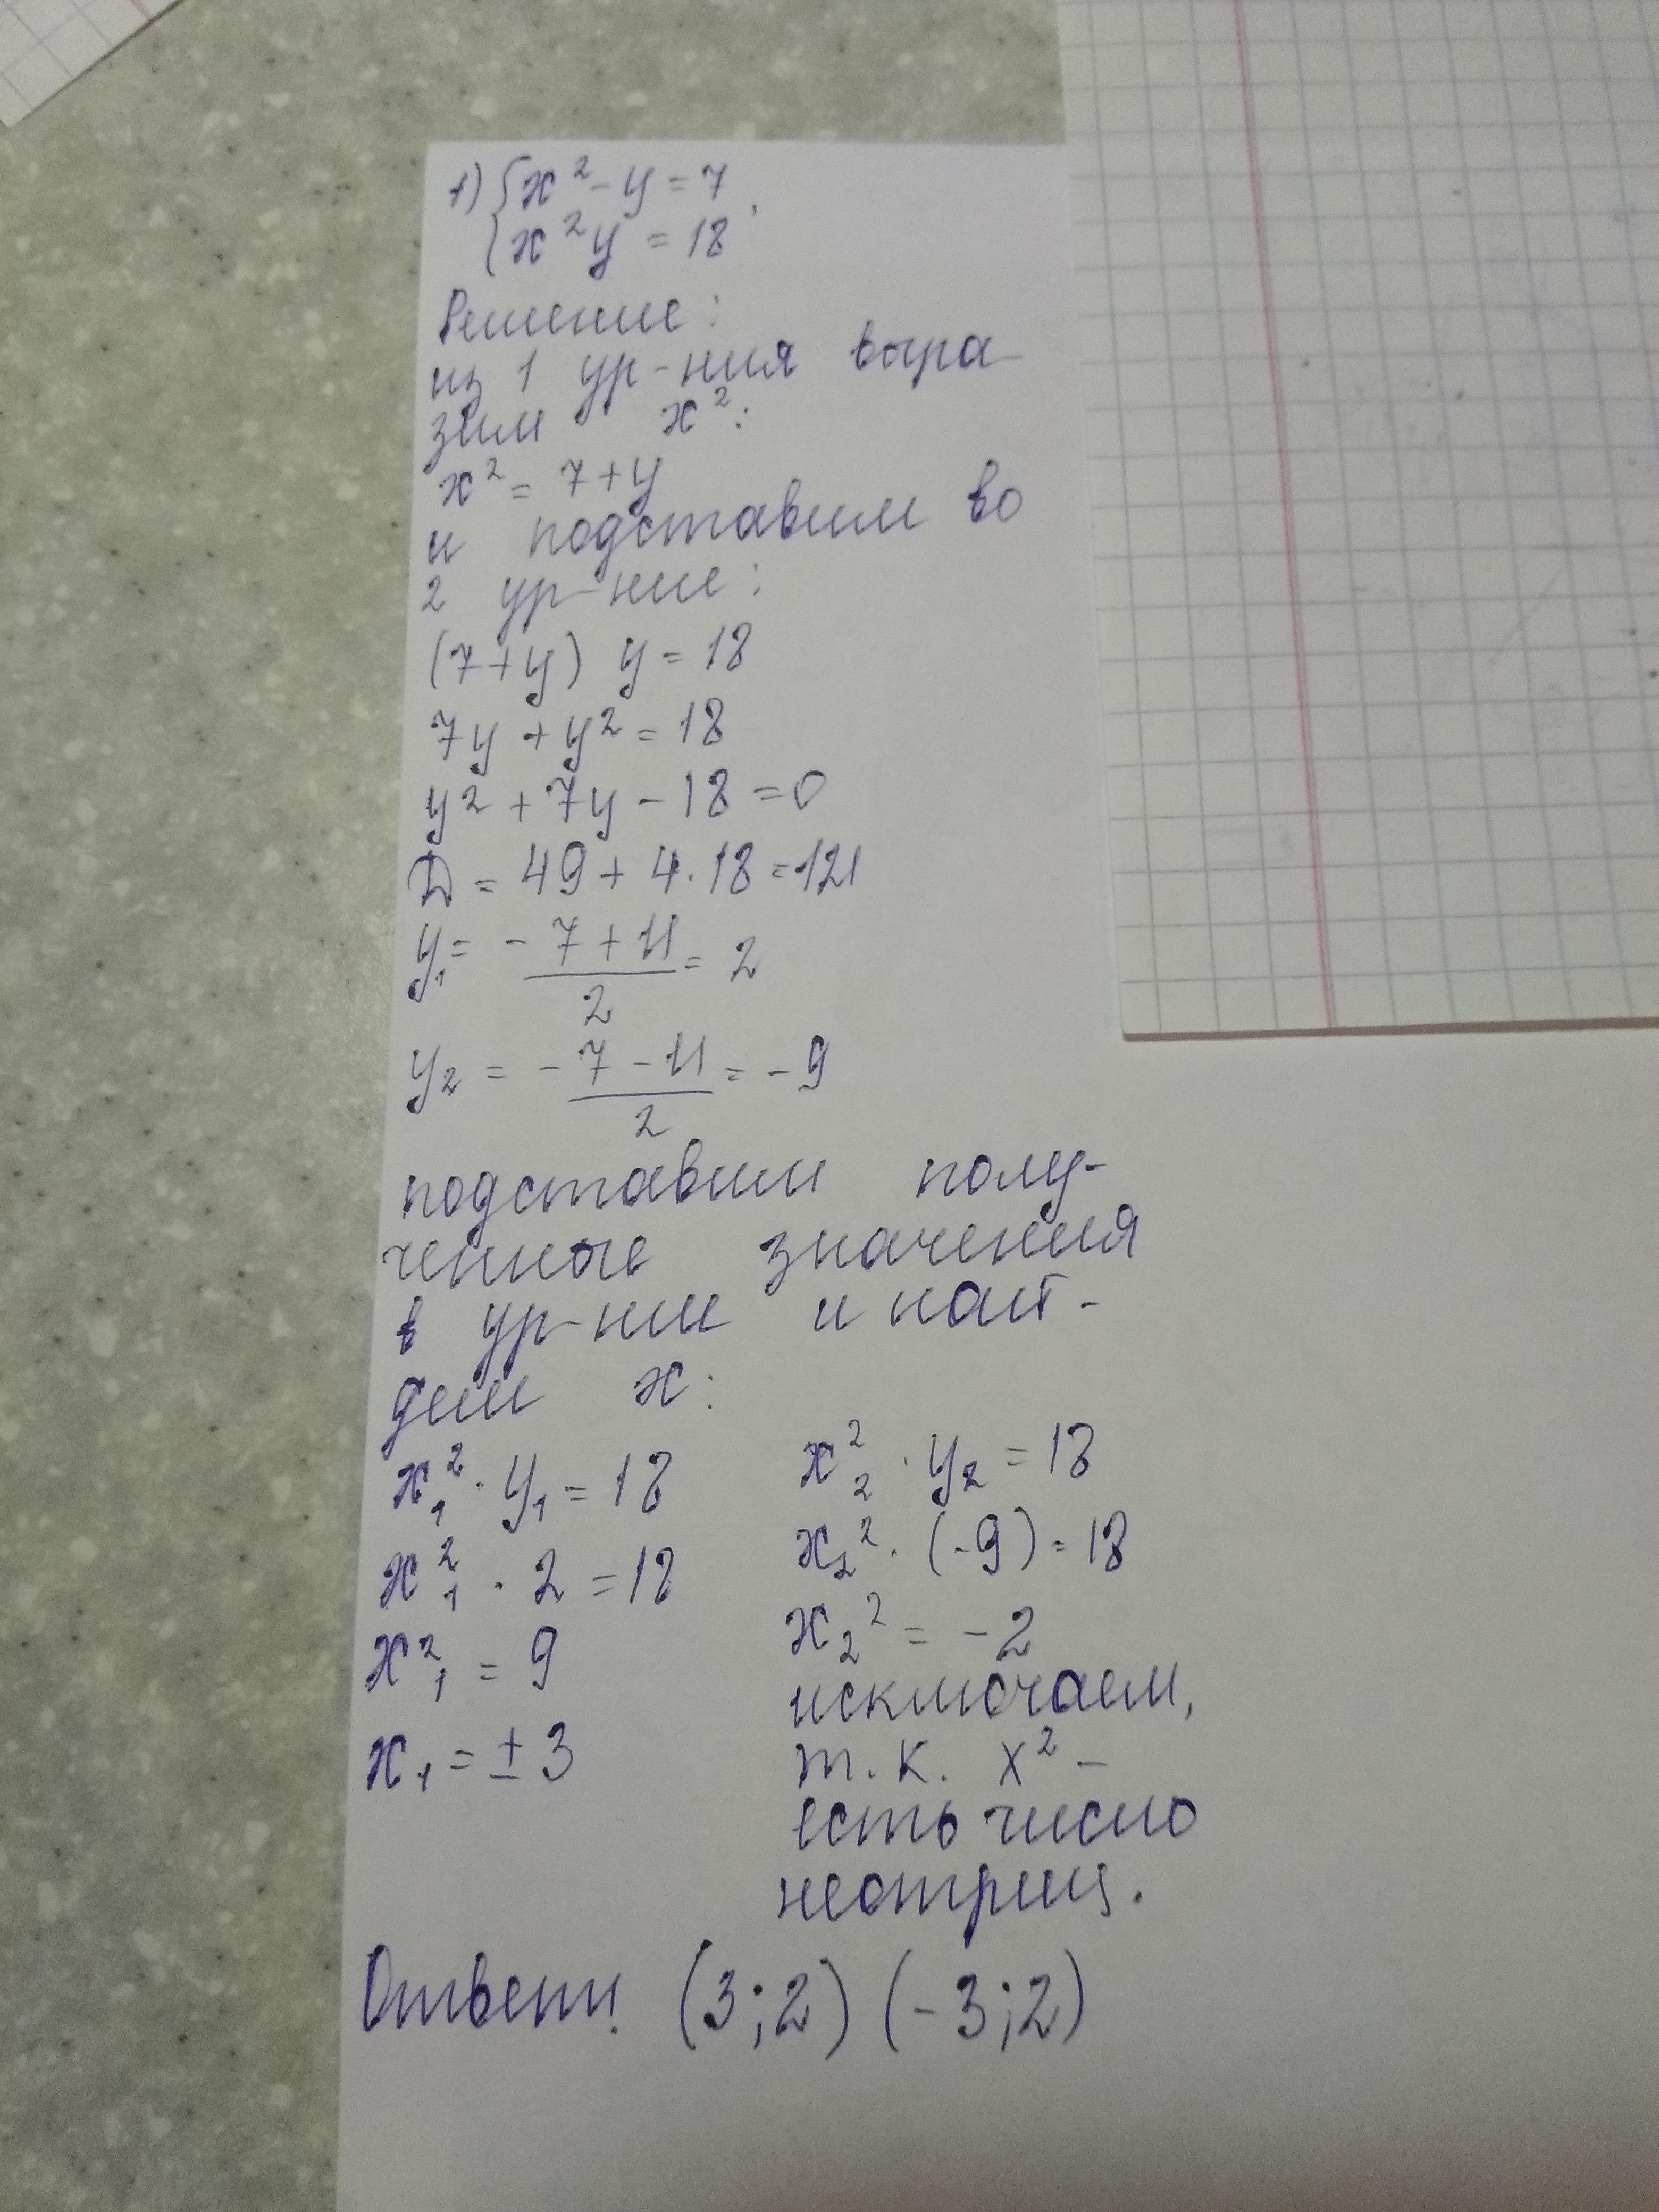 1) { x² - y = 7
{ x²y = 18 ,
Решение:
из 1 ур-ния выра-
зим x²:
x² = 7 + y
и подставим во
2 ур-ние:
(7 + y) y = 18
7y + y² = 18
y² + 7y - 18 = 0
D = 49 + 4·18 = 121
y₁ = -7 + 11 / 2 = 2
y₂ = -7 - 11 / 2 = -9
подставим полу-
ченные значения
в ур-ния и най-
дем x:
x₁² · y₁ = 18
x₁² · 2 = 18
x₁² = 9
x₁ = ± 3
x₂² · y₂ = 18
x₂² · (-9) = 18
x₂² = -2
исключаем,
т.к. x² -
есть число
неотриц.
Ответ: (3; 2) (-3; 2)